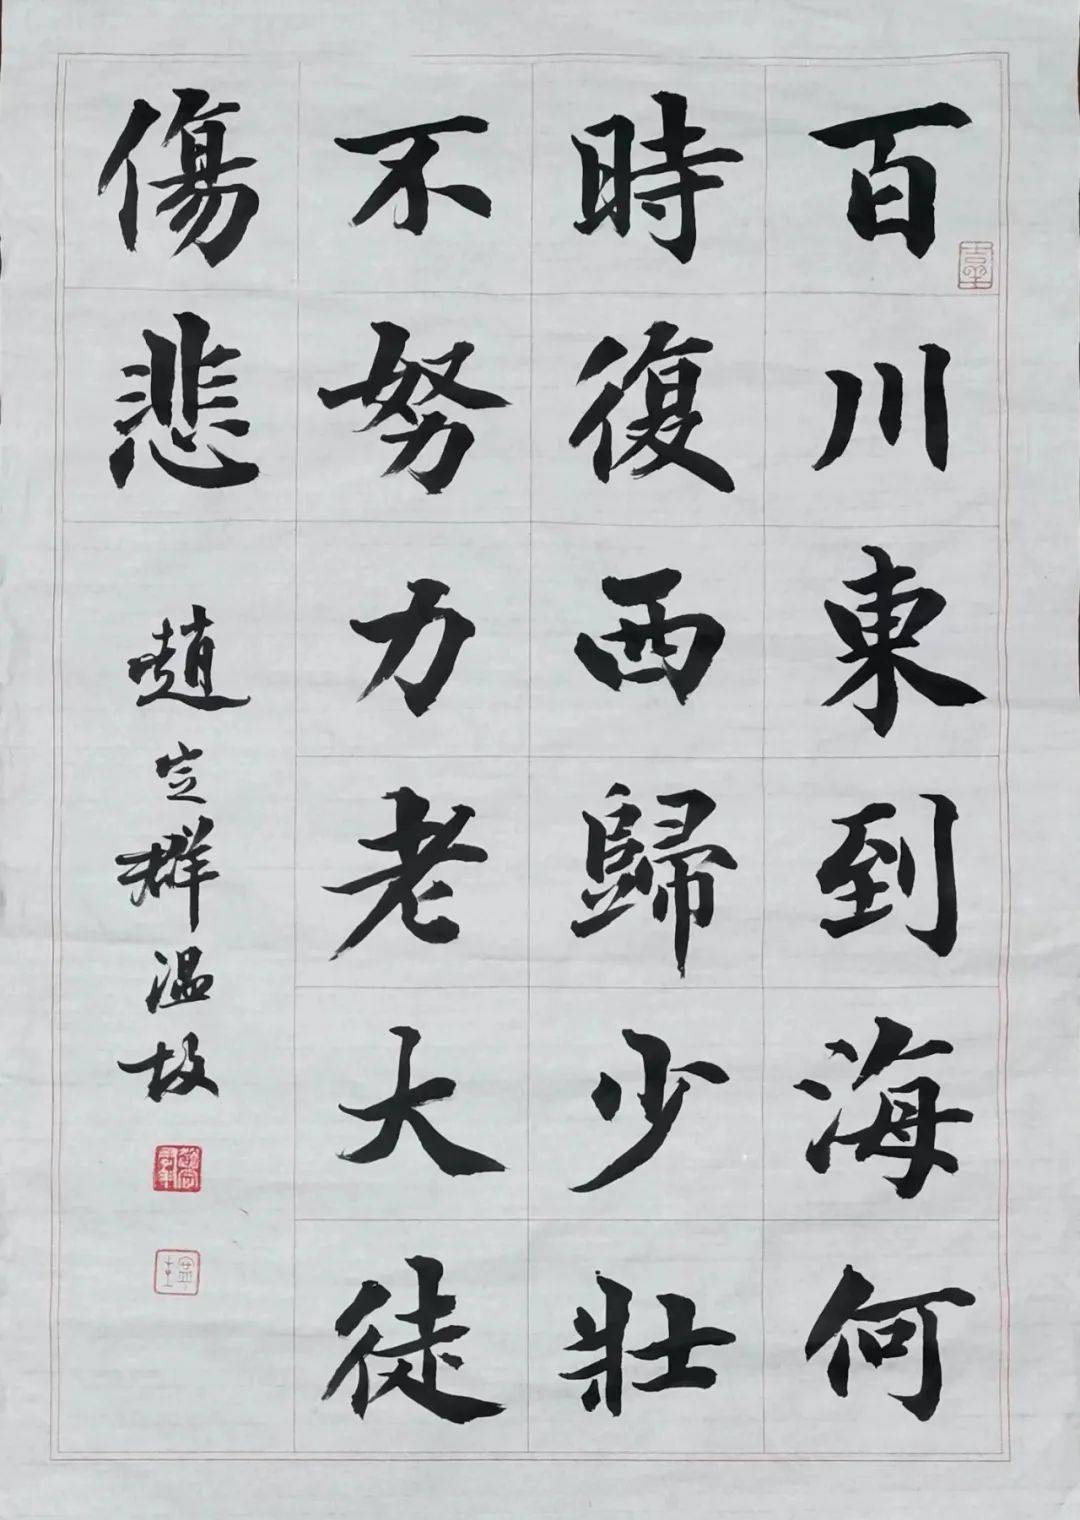 百川東到海何
時復西歸少壯
不努力老大徒
傷悲
趙定群温故